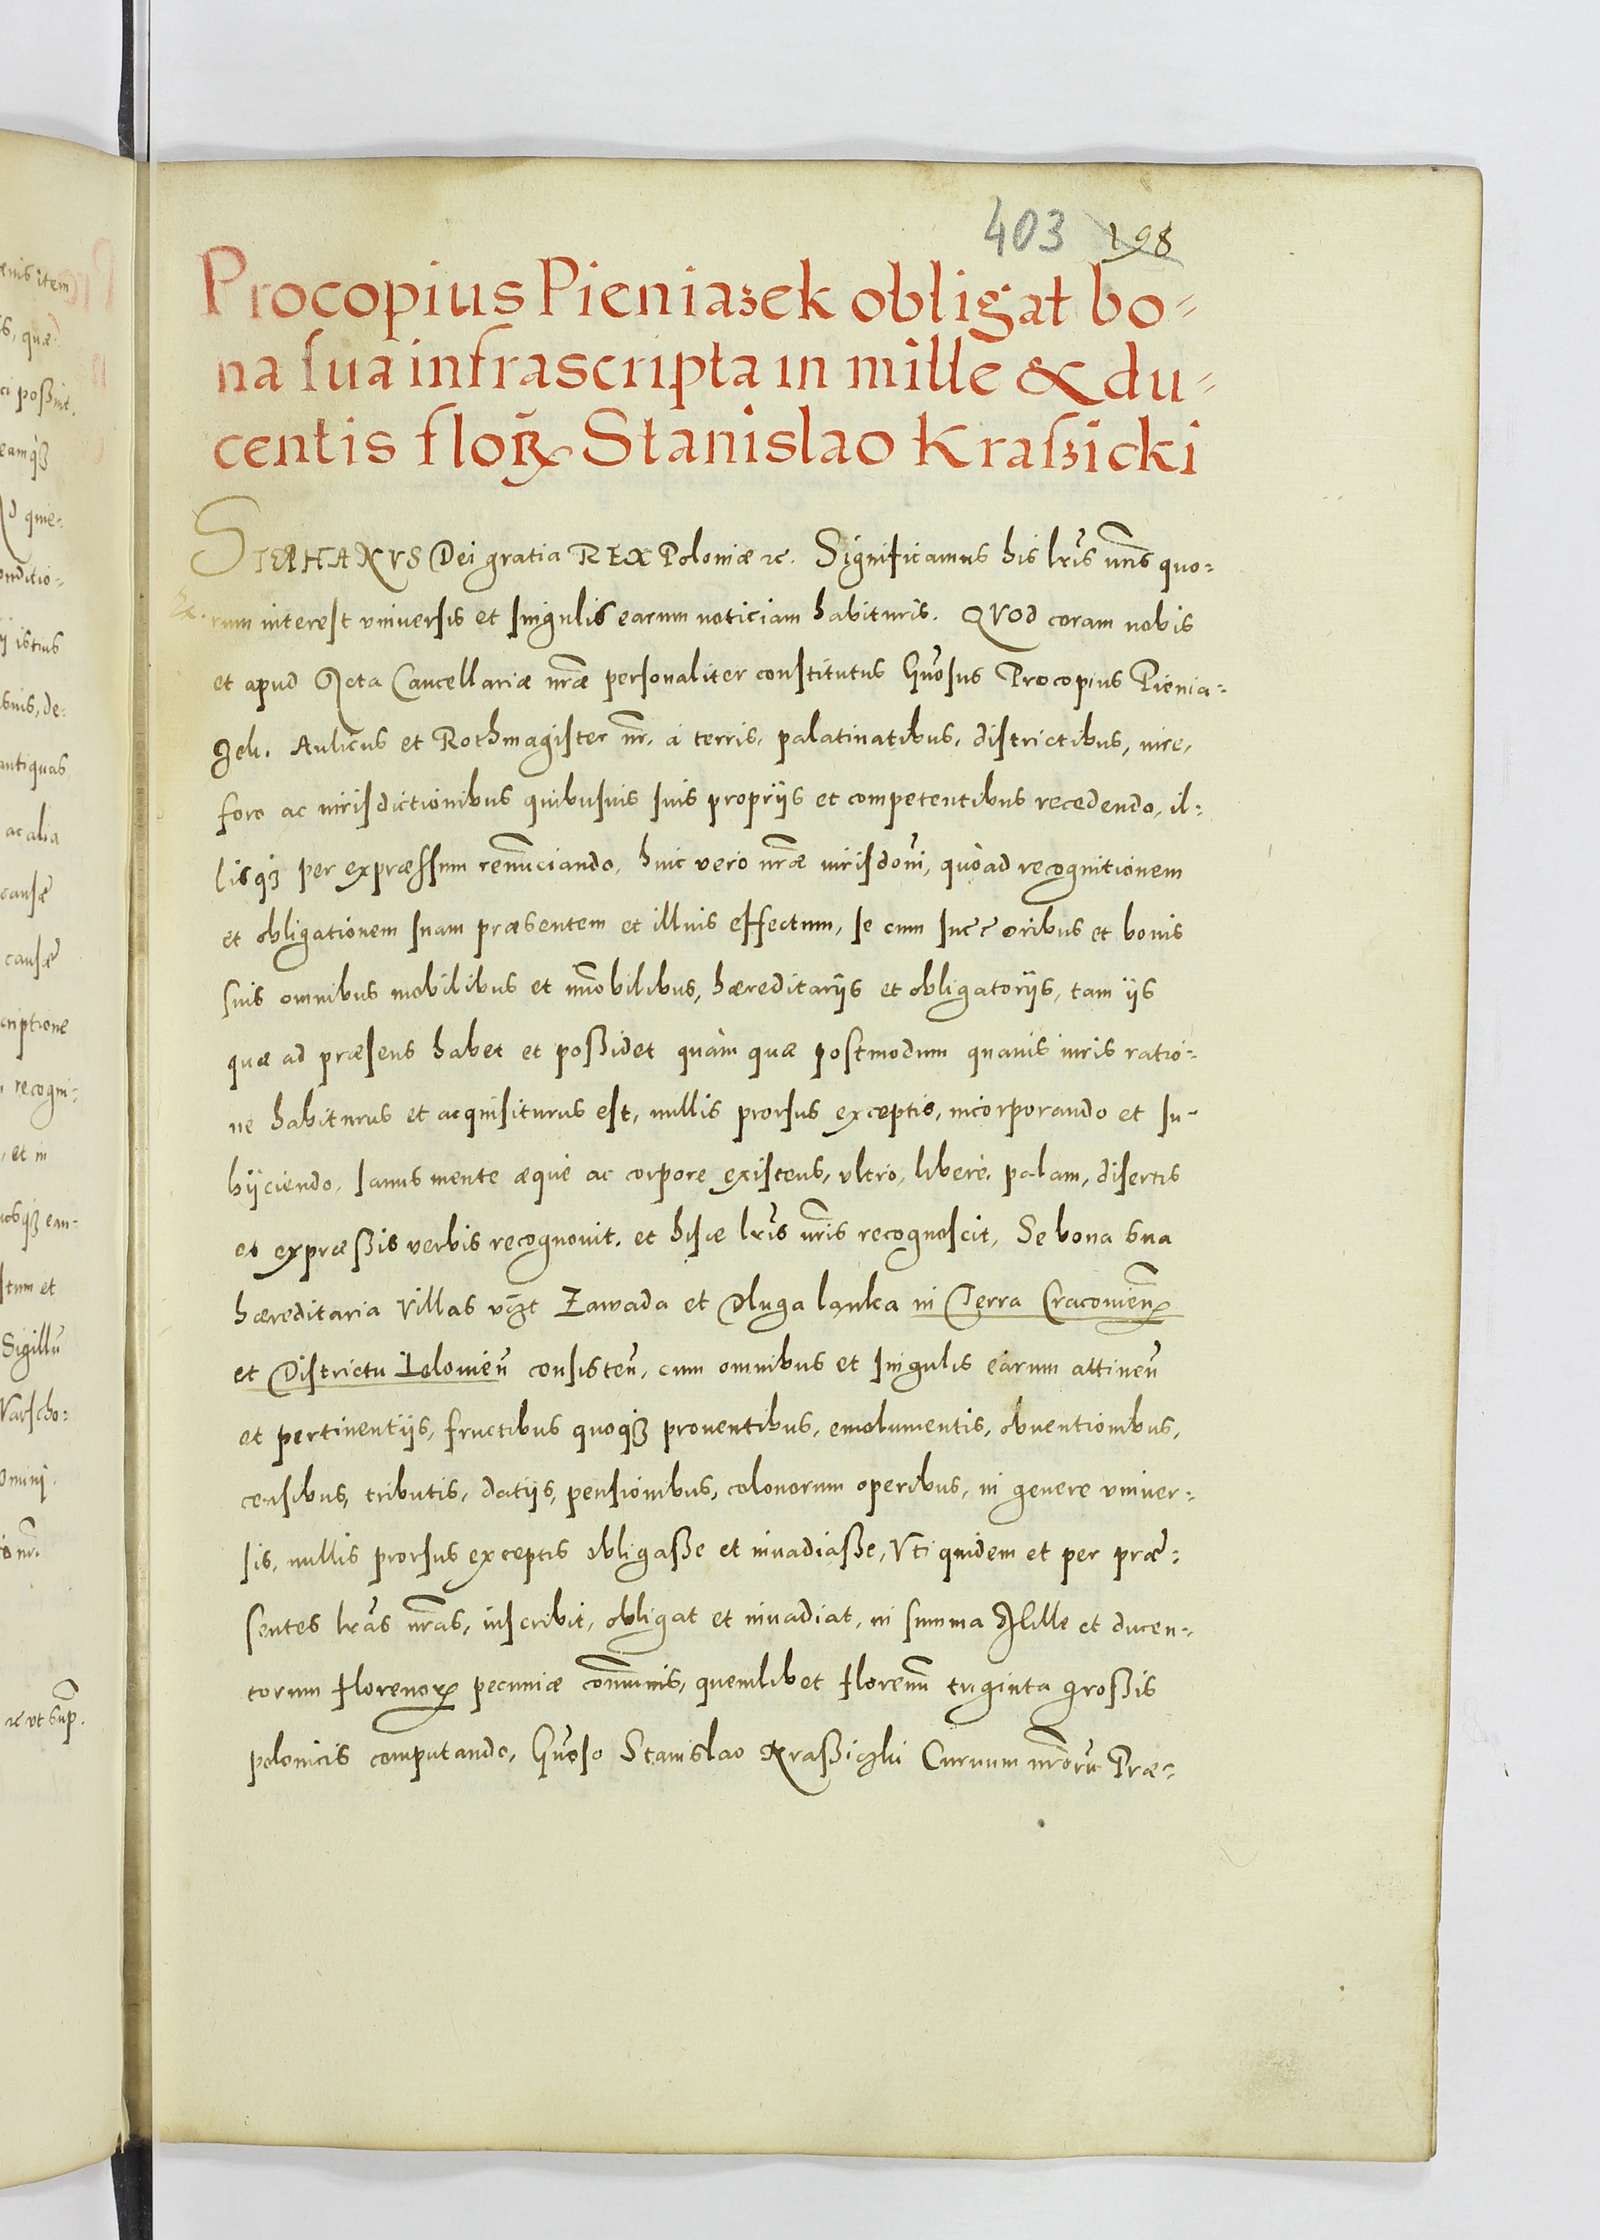 403 198
Procopius Pieniazek obligat bo-
na sua infrascripta in mille & du-
centis flor. Stanislao Kraßicki
STEPHANVS Dei gratia REX Poloniæ &c. Significamus his lrīs nrīs quo-
rum interest vniuersis et singulis earum noticiam habituris. QVOd coram nobis
et apud Acta Cancellariæ nræ personaliter constitutus Gnōsus Procopius Pienia-
zek. Aulicus et Rothmagister nr. à terris, palatinatibus, districtibus, iure,
foro ac iurisdictionibus quibusuis suis proprijs et competentibus recedendo, il-
lisqȝ per expræssum renunciando, huic vero nræ iurisdoni, quoad recognitionem
et obligationem suam præsentem et illius effectum, se cum succoribus et bonis
suis omnibus mobilibus et immobilibus, hæreditarijs et obligatorijs, tam ijs
quæ ad præsens habet et poßidet quàm quæ postmodum quauis iuris ratio-
ne habiturus et acquisiturus est, nullis prorsus exceptis, incorporando et su-
bijciendo, sanus mente æque ac corpore existens, vltro, libere, palam, disertis
et expræßis verbis recognouit, et hisce lrīs nrīs recognoscit, Se bona sua
hæreditaria Villas vizt Zawada et Dluga lanka in Terra Cracouien
et Districtu Iclouien consisten, cum omnibus et singulis earum attinen
et pertinentijs, fructibus quoqȝ prouentibus, emolumentis, obuentionibus,
censibus, tributis, datijs, pensionibus, colonorum operibus, in genere vniuer-
sis, nullis prorsus exceptis obligaße et inuadiaße, Vti quidem et per præ-
sentes lrās nrās, inscribit, obligat et inuadiat, in summa Mille et ducen-
torum Florenor pecuniæ comunis, quemlibet Florenū triginta großis
polonicis computando, Gnōso Stanislao Kraßiczki Curuum nrorū Præ-